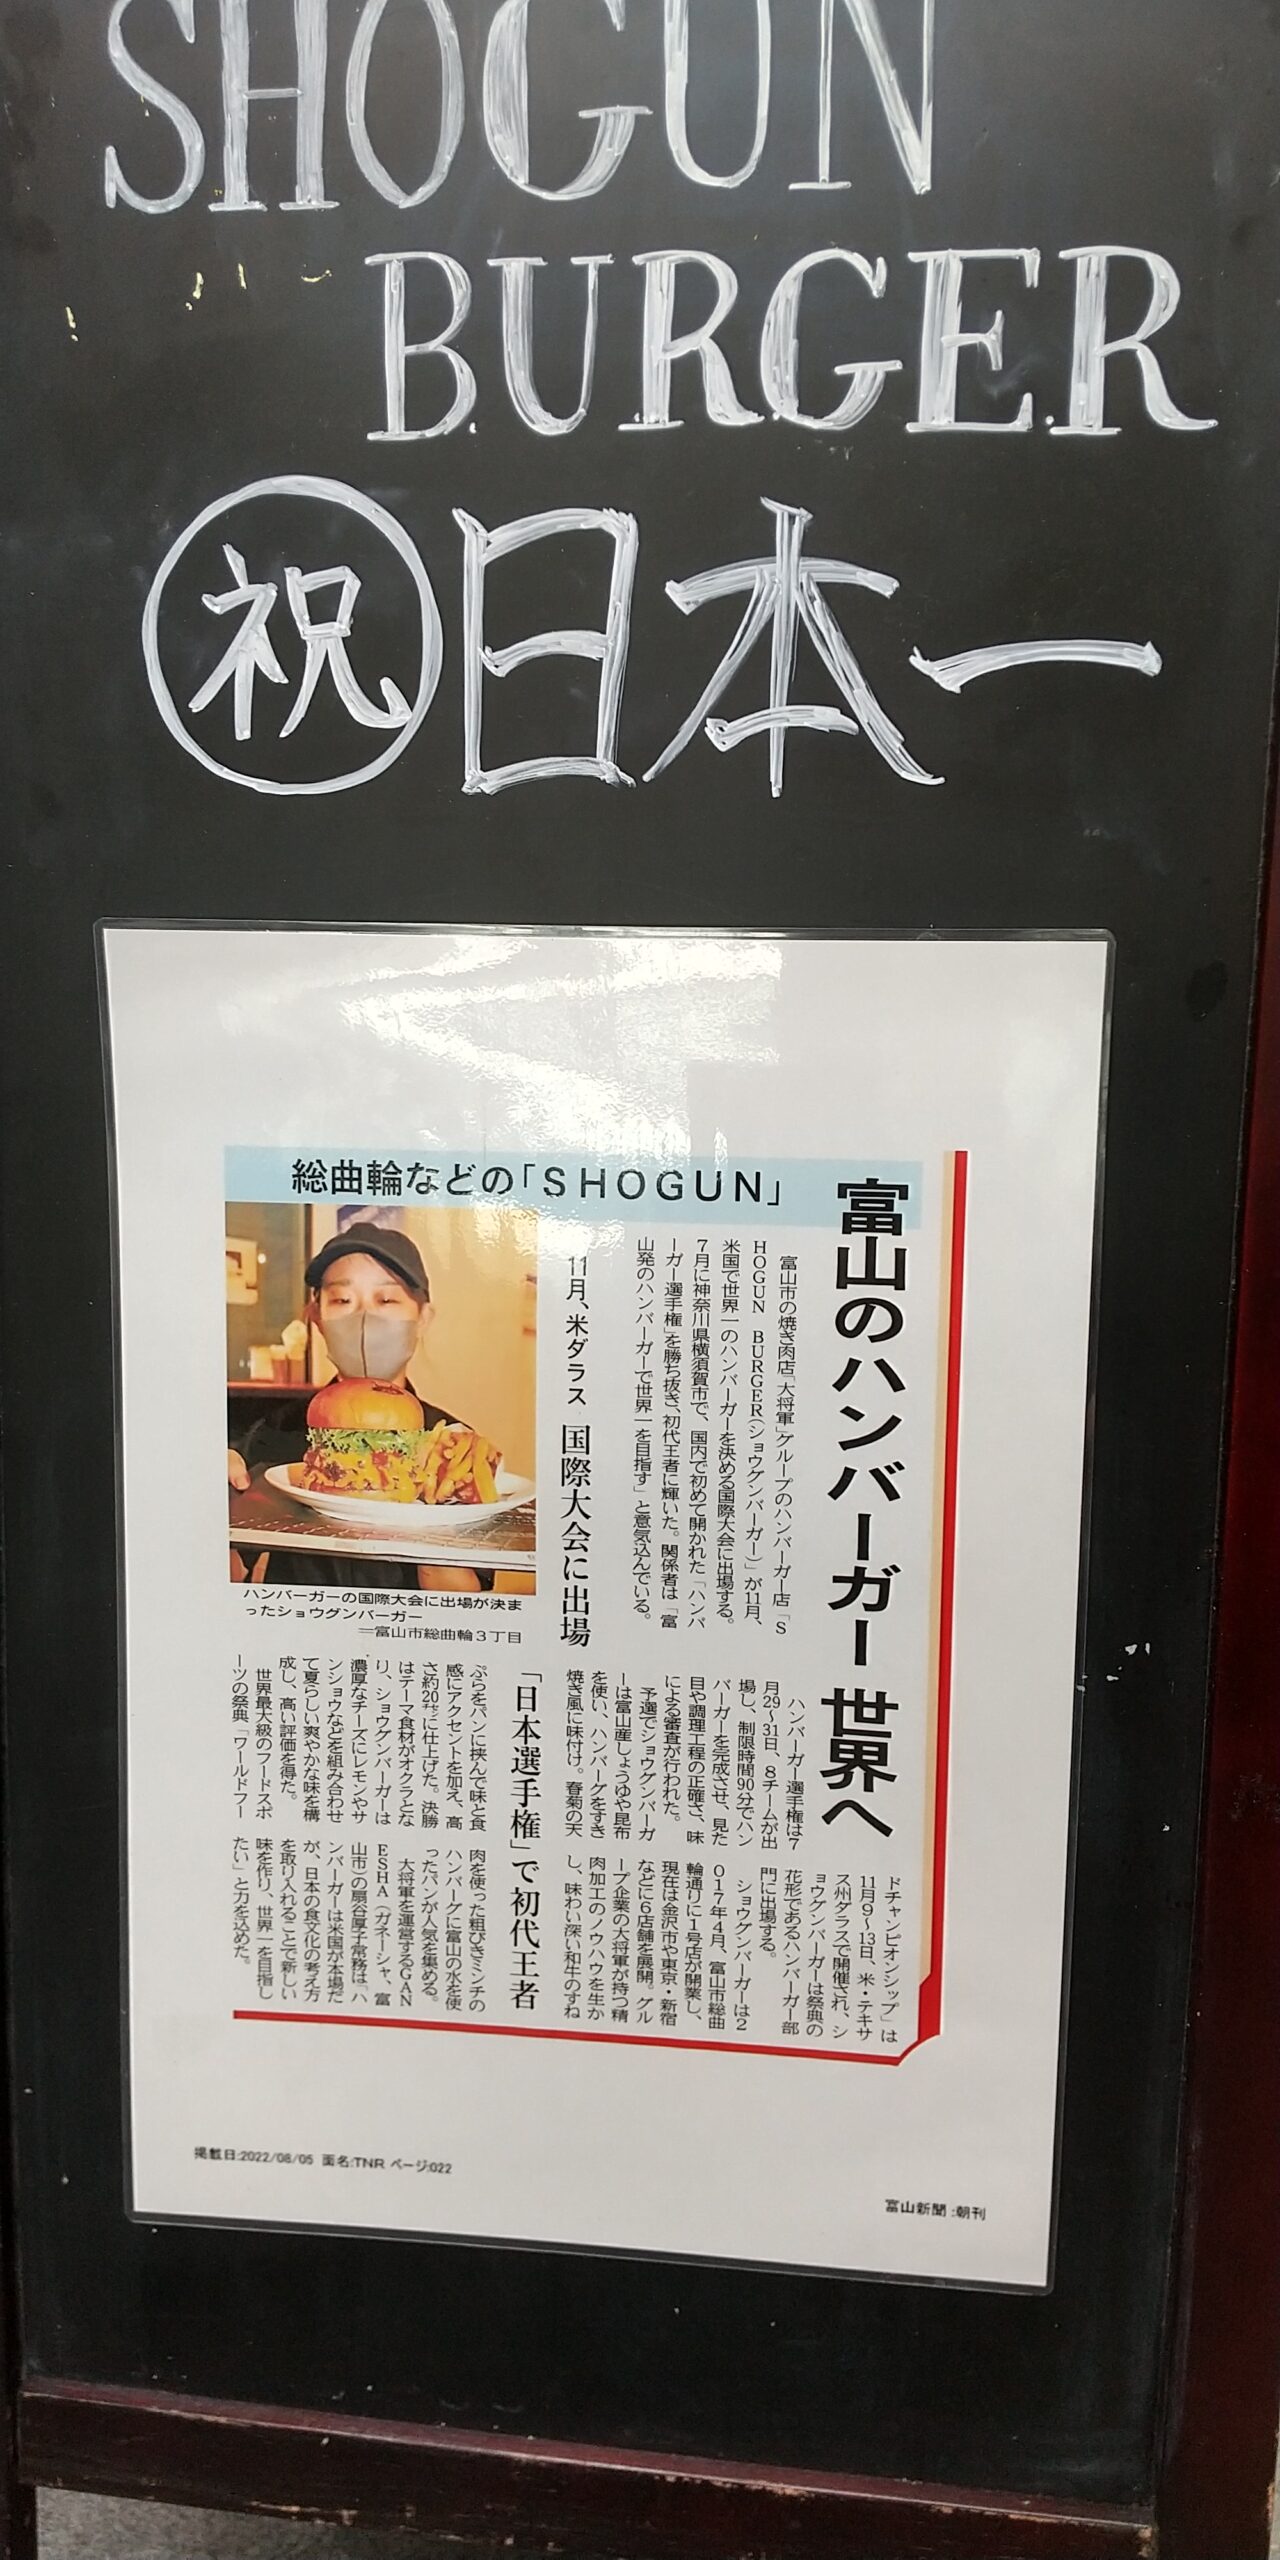 SHOGUN
BURGER
㊗日本一
総曲輪などの「SHOGUN」
富山のハンバーガー 世界へ
11月、米ダラス 国際大会に出場
富山市の焼き肉店「大将軍」グループのハンバーガー店「S
HOGUN BURGER(ショウグンバーガー)」が11月、
米国で世界一のハンバーガーを決める国際大会に出場する。
7月に神奈川県横須賀市で、国内で初めて開かれた「ハンバ
ーガー選手権」を勝ち抜き、初代王者に輝いた。関係者は「富
山発のハンバーガーで世界一を目指す」と意気込んでいる。
ハンバーガーの国際大会に出場が決ま
ったショウグンバーガー
=富山市総曲輪3丁目
ハンバーガー選手権は7
月29~31日、8チームが出
場し、制限時間90分でハン
バーガーを完成させ、見た
目や調理工程の正確さ、味
による審査が行われた。
予選でショウグンバーガ
ーは富山産しょうゆや昆布
を使い、ハンバーグをすき
焼き風に味付け。春菊の天
「日本選手権」で初代王者
ぷらをパンに挟んで味と食
感にアクセントを加え、高
さ約20㌢に仕上げた。決勝
はテーマ食材がオクラとな
り、ショウグンバーガーは
濃厚なチーズにレモンやサ
ンショウなどを組み合わせ
て夏らしい爽やかな味を構
成し、高い評価を得た。
世界最大級のフードスポ
ーツの祭典「ワールドフー
ドチャンピオンシップ」は
11月9~13日、米・テキサ
ス州ダラスで開催され、シ
ョウグンバーガーは祭典の
花形であるハンバーガー部
門に出場する。
ショウグンバーガーは2
017年4月、富山市総曲
輪通りに1号店が開業し、
現在は金沢市や東京・新宿
などに6店舗を展開。グル
ープ企業の大将軍が持つ精
肉加工のノウハウを生か
し、味わい深い和牛のすね
肉を使った粗びきミンチの
ハンバーグに富山の水を使
ったパンが人気を集める。
大将軍を運営するGAN
ESHA(ガネーシャ、富
山市)の扇谷厚子常務は「ハ
ンバーガーは米国が本場だ
が、日本の食文化の考え方
を取り入れることで新しい
味を作り、世界一を目指し
たい」と力を込めた。
掲載日:2022/08/05 面名:TNR ページ:022
富山新聞 :朝刊